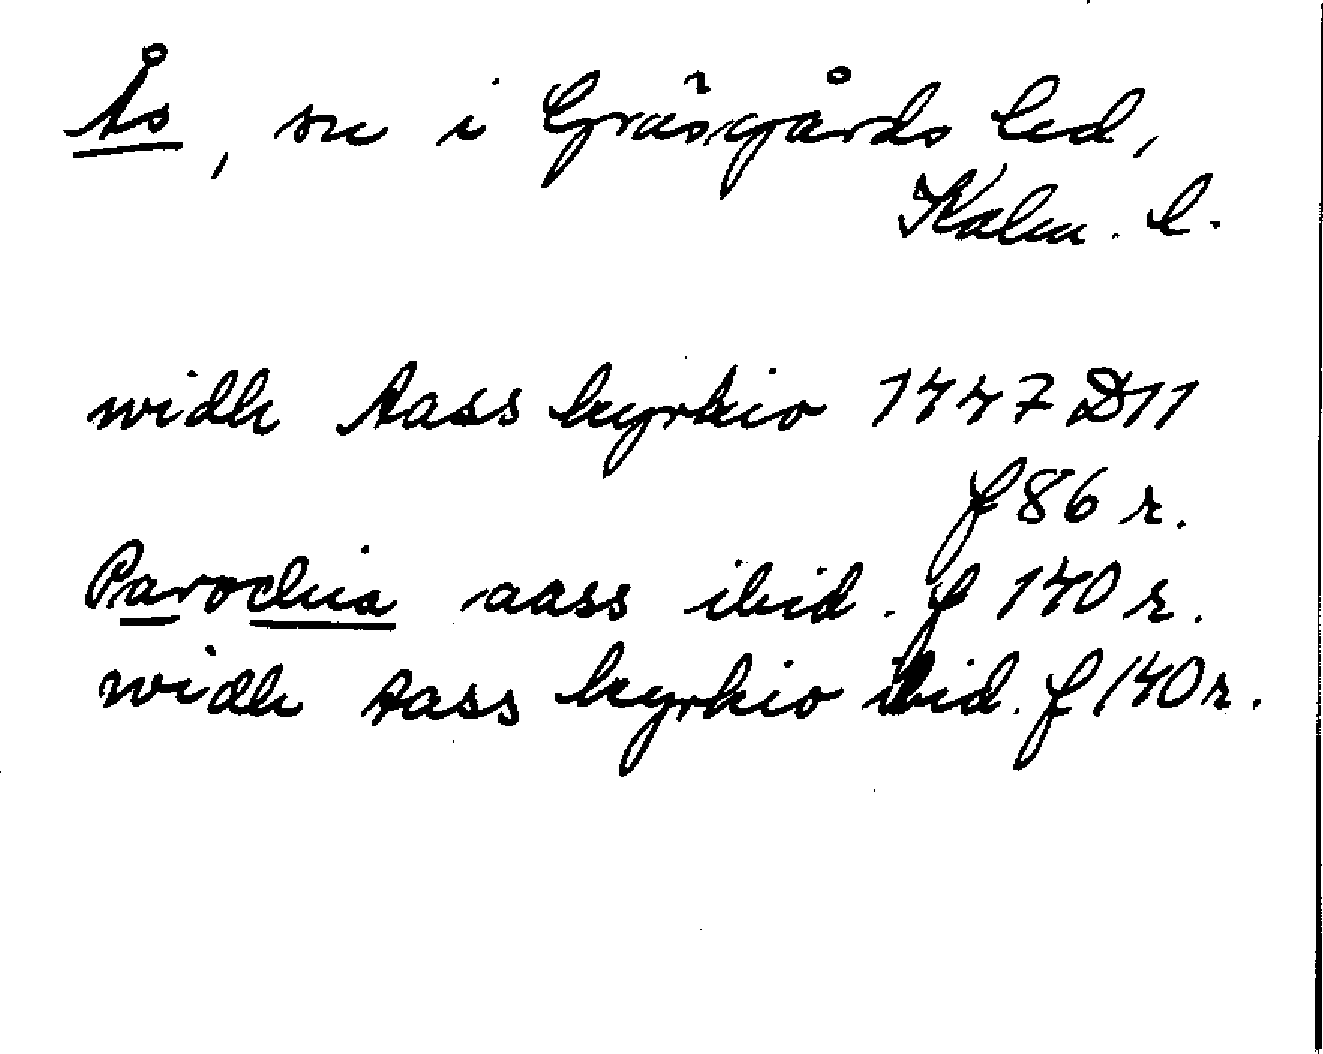 Ås, sn i Gräsgårds hd,
Kalm. l.
widh Aass kyrkio 1447 D11
f 86 r.
Parochia aass ibid. f 140 r.
widh Aass kyrkio ibid. f 140 r.